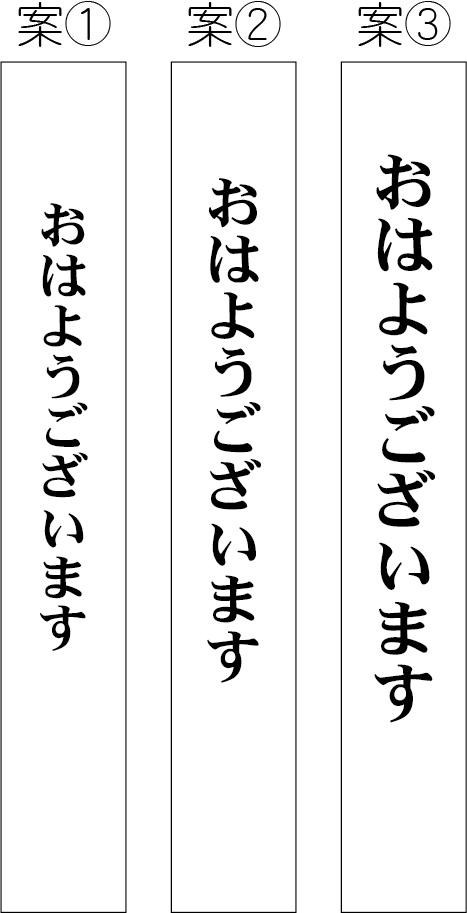 案①
おはようございます
案②
おはようございます
案③
おはようございます